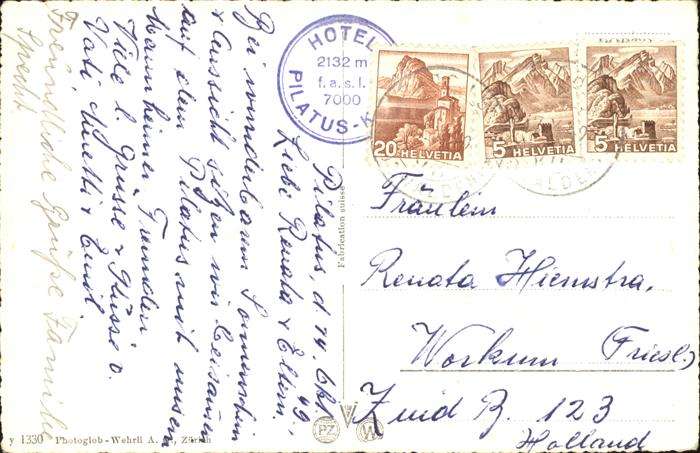 Pilatus, d. 14. Okt. 49.
Liebe Renata & Eltern!
Bei wunderbarem Sonnenschein
& Aussicht sitzen wir beisammen
auf dem Pilatus mit unsern
Mannheimer Freunden
Viele l. Grüsse & Küsse v.
Vati Mutti & Emil.
Freundliche Grüße Familie
Specht
HOTEL
2132 m
f. a. s. l.
7000
PILATUS-K
20 HELVETIA
5 HELVETIA
5 HELVETIA
Fräulein
Renata Hiemstra.
Workum (Friesl.)
Zuid B. 123
Holland
Fabrication suisse
y 1330 Photoglob-Wehrli A. G., Zürich
PZ W